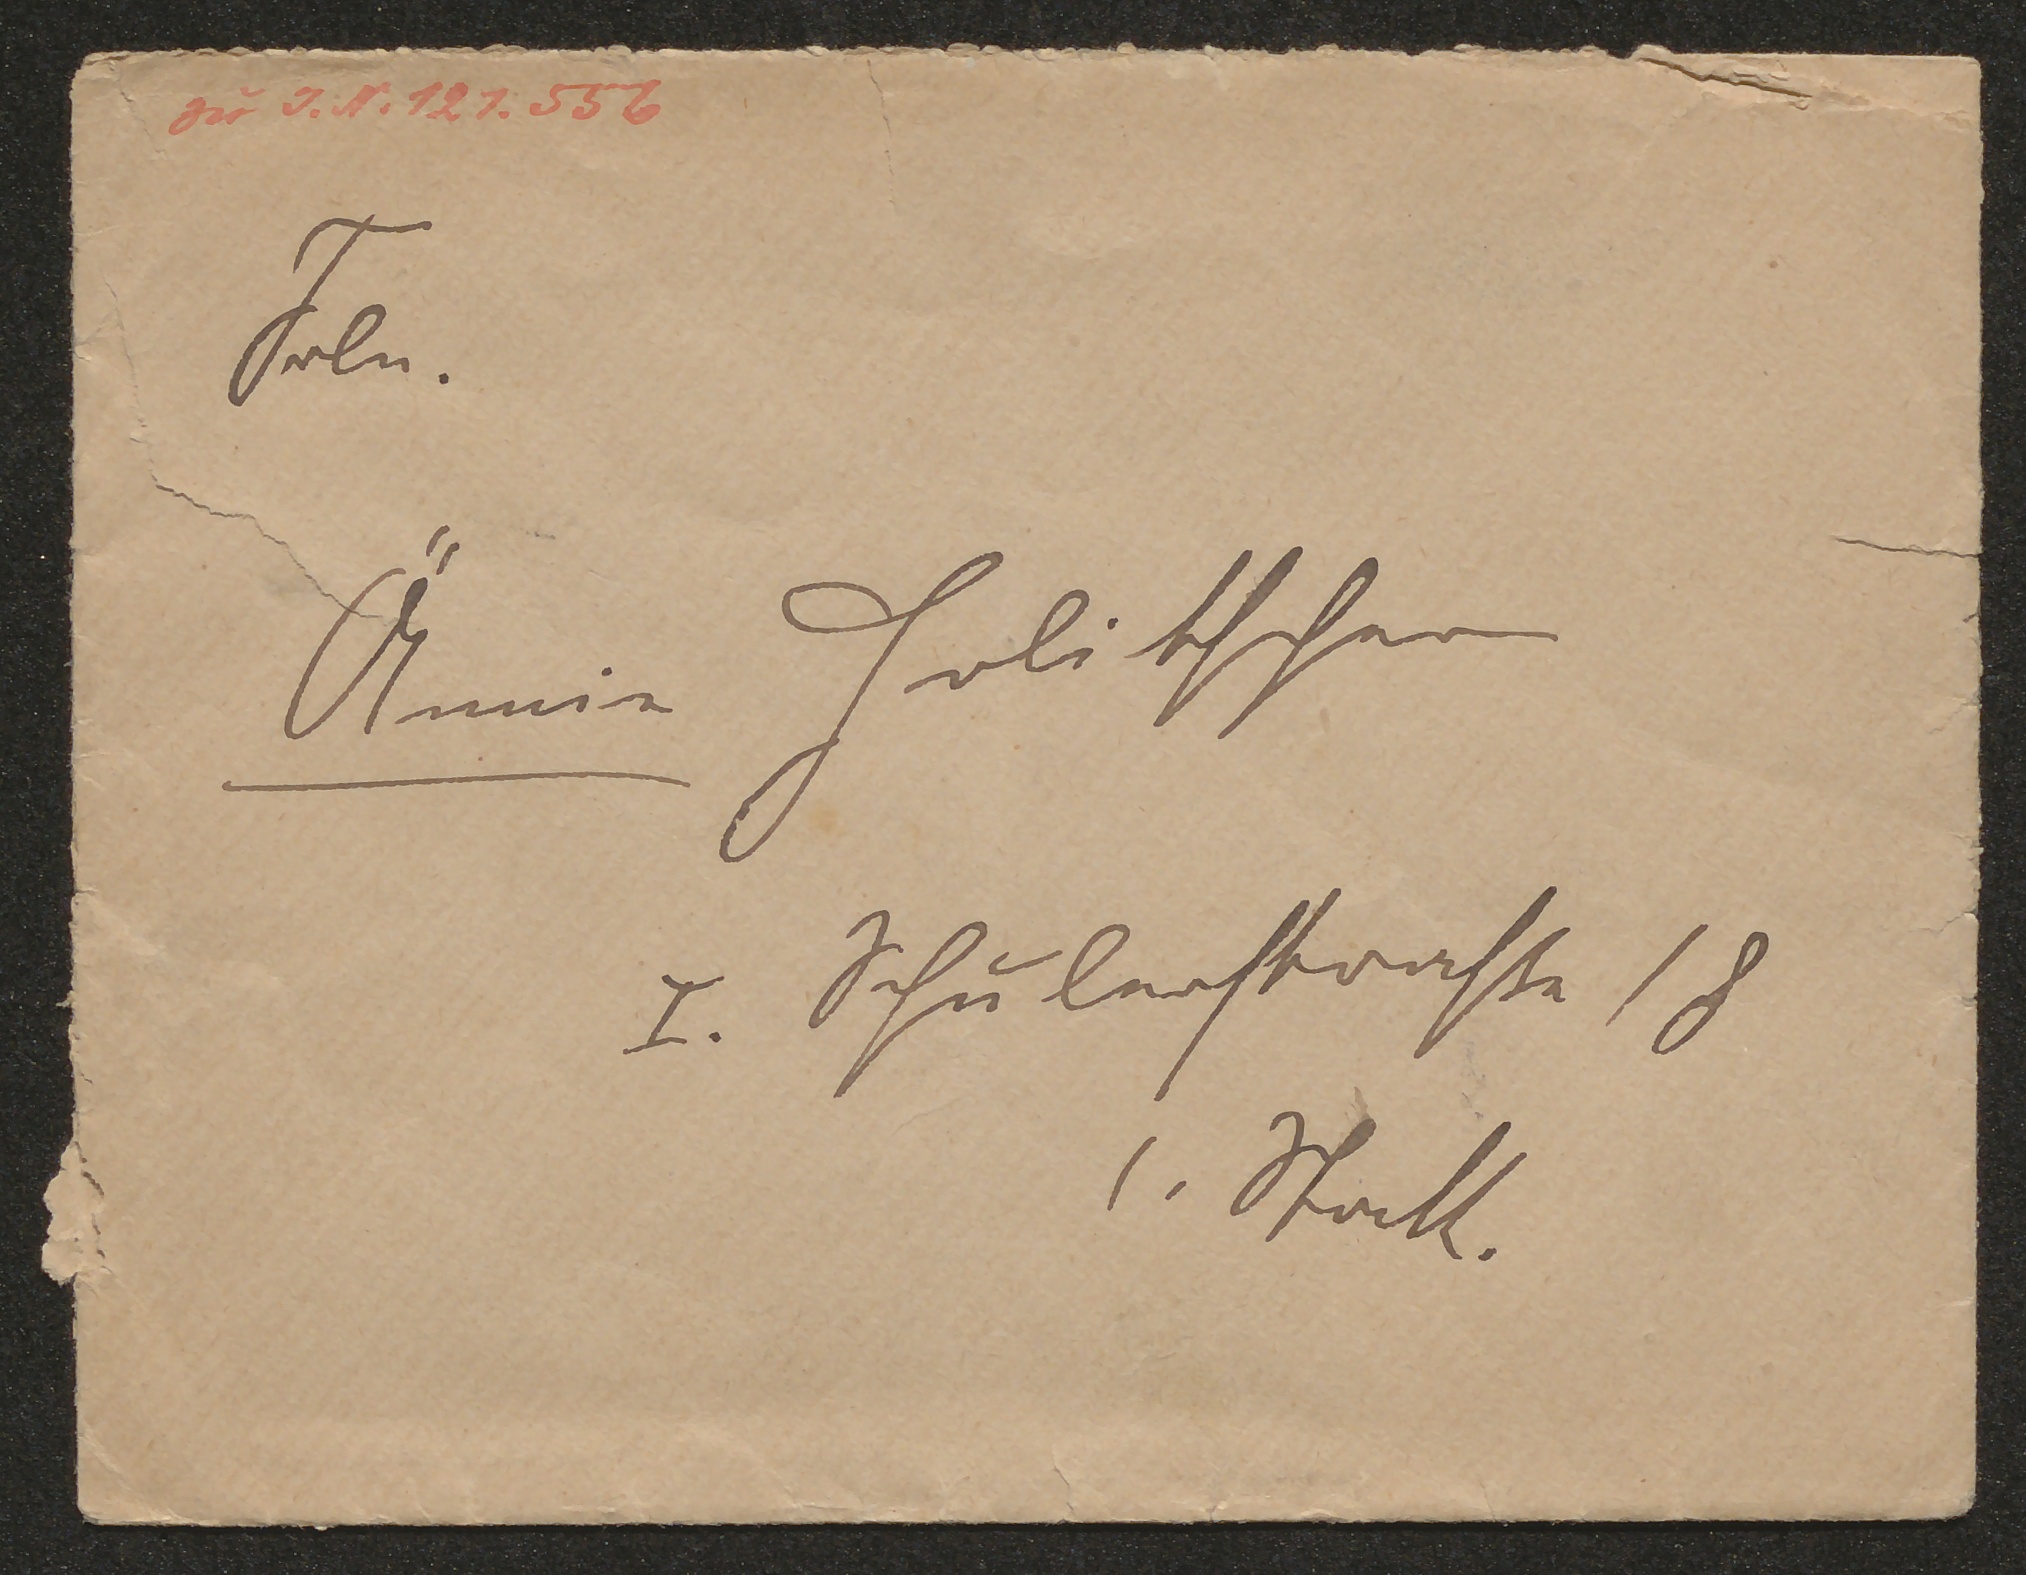 zu I.N. 121.556
Frln.
Ännie Holitscher
I. Schulerstrasse 18
1. Stock.